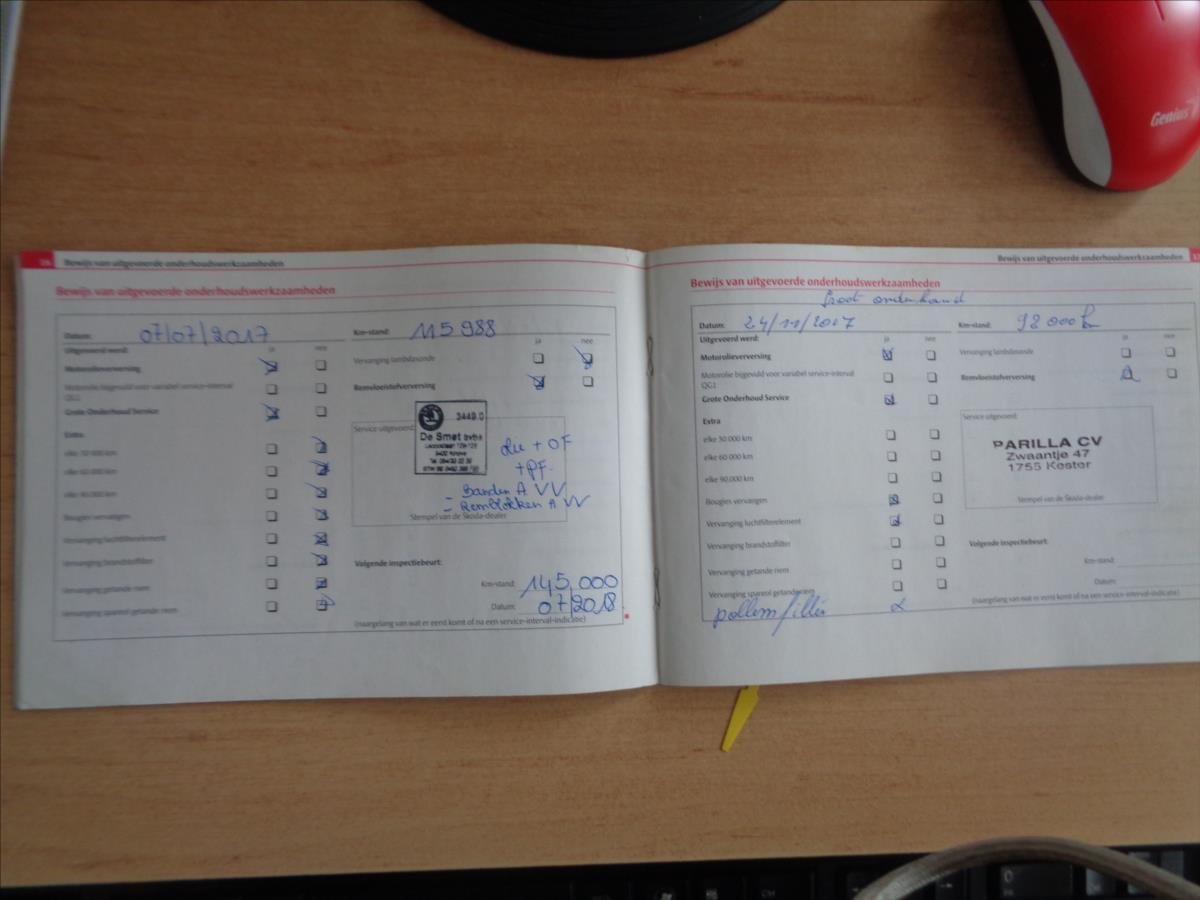 Genius
26 Bewijs van uitgevoerde onderhoudswerkzaamheden
Bewijs van uitgevoerde onderhoudswerkzaamheden
Datum: 07/07/2017 Km-stand: 115 988
Uitgevoerd werd: ja nee ja nee
Motorolieverversing Vervanging lambdasonde
Motorolie bijgevuld voor variabel service-interval Remvloeistofverversing
QG1
Grote Onderhoud Service
3449.0
Service uitgevoerd:
De Smet bvba
Extra
elke 30 000 km
elke 60 000 km
elke 90 000 km
+ OF
+PF
- Banden A VV
- Remblokken A VV
Stempel van de Škoda-dealer
Bougies vervangen
Vervanging luchtfilterelement
Vervanging brandstoffilter
Volgende inspectiebeurt:
Vervanging getande riem
Km-stand: 145.000
Vervanging spanrol getande riem
Datum: 07/2018
(naargelang van wat er eerst komt of na een service-interval-indicatie)
Bewijs van uitgevoerde onderhoudswerkzaamheden
Bewijs van uitgevoerde onderhoudswerkzaamheden
Groot onderhoud
Datum: 24/11/2017 Km-stand: 92 000 km
Uitgevoerd werd: ja nee ja nee
Motorolieverversing Vervanging lambdasonde
Motorolie bijgevuld voor variabel service-interval Remvloeistofverversing
QG1
Grote Onderhoud Service
Service uitgevoerd:
Extra
elke 30 000 km
elke 60 000 km
elke 90 000 km
PARILLA CV
Zwaantje 47
1755 Kester
Stempel van de Škoda-dealer
Bougies vervangen
Vervanging luchtfilterelement
Vervanging brandstoffilter
Volgende inspectiebeurt:
Km-stand:
Vervanging getande riem
Datum:
Vervanging spanrol getande riem
(naargelang van wat er eerst komt of na een service-interval-indicatie)
pollenfilter